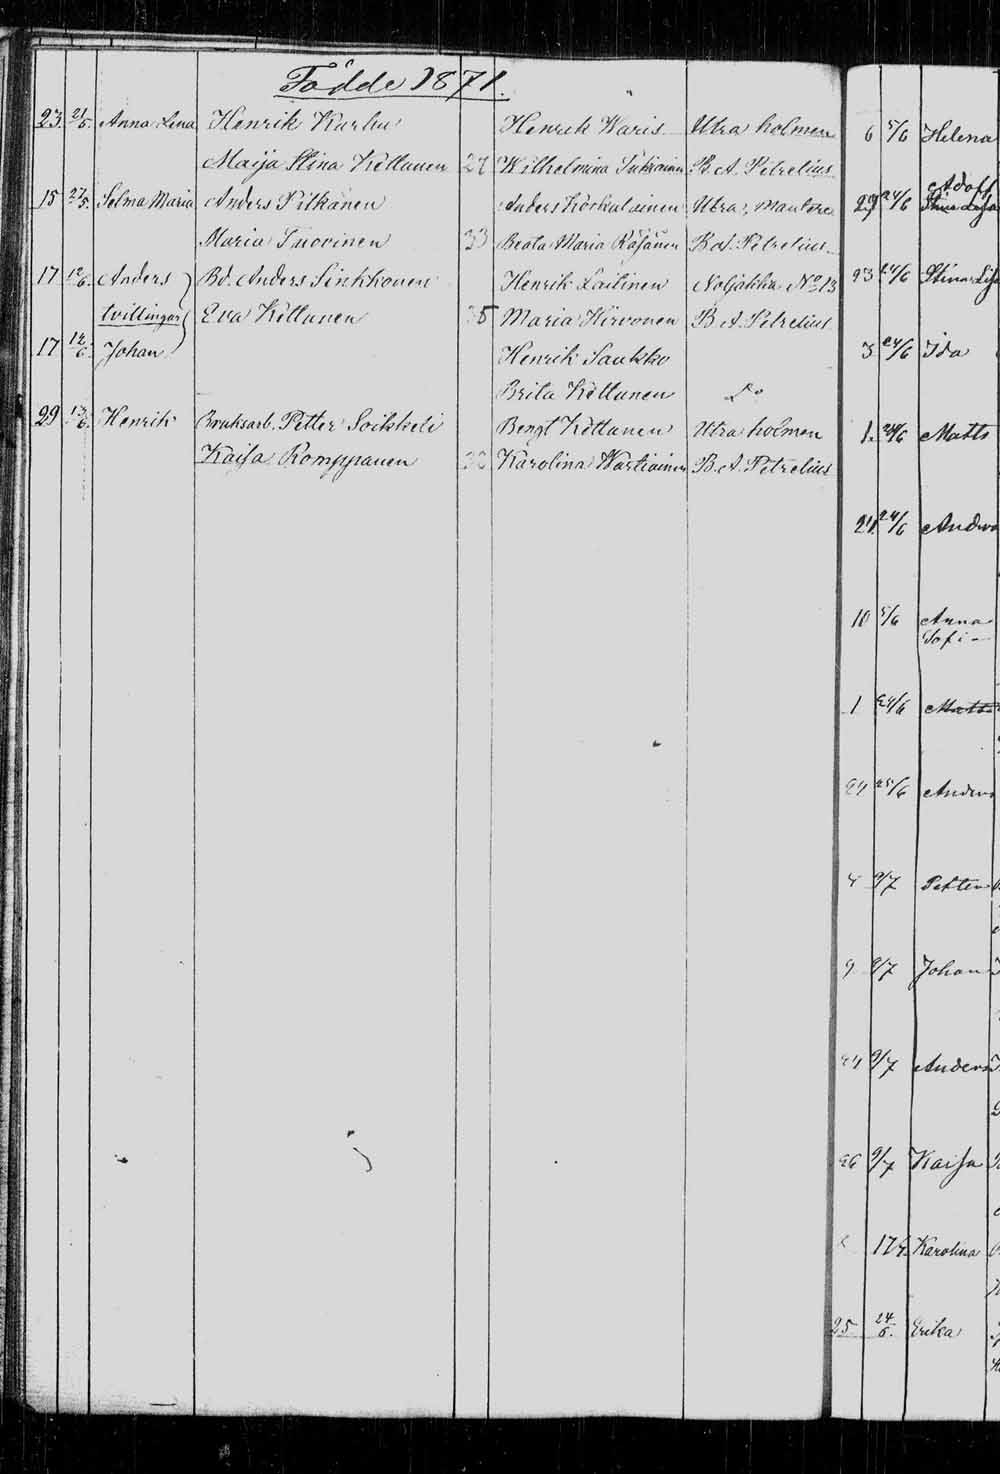 Födde 1871.
23. 21/5. Anna Lena Henrik Karhu Henrik Waris Utra holmen
Maija Stina Kettunen 27 Wilhelmina B. A. Petrelius
15 27/5. Selma Maria Anders Pitkänen Anders Utra,
Maria Tuovinen 33 Beata Maria Räsänen B.A. Petrelius
17 12/6. Anders Bd. Anders Sinkkonen Henrik Laitinen Noljakka No 13
tvillingar Eva Kettunen 35 Maria Hirvonen B. A. Petrelius
17 12/6 Johan Henrik Saukko
Brita Kettunen Do
29 13/6. Henrik Bruksarb. Petter Soikkeli Bengt Kettunen Utra holmen
Kaisa Romppanen Karolina Wartiainen B. A. Petrelius
6 5/6 Helena
Adolf
29 24/6
23 24/6 Stina Lisa
3 24/6 Ida
1. 24/6 Matts
21. 24/6 Andrea
10 5/6 Anna
Sofi
1 24/6 Matts
24 25/6 Anders
9/7 Petter
9 9/7 Johan
24 9/7 Anders
26 9/7 Kaisa
17/7. Karolina
25 24/6. Erika